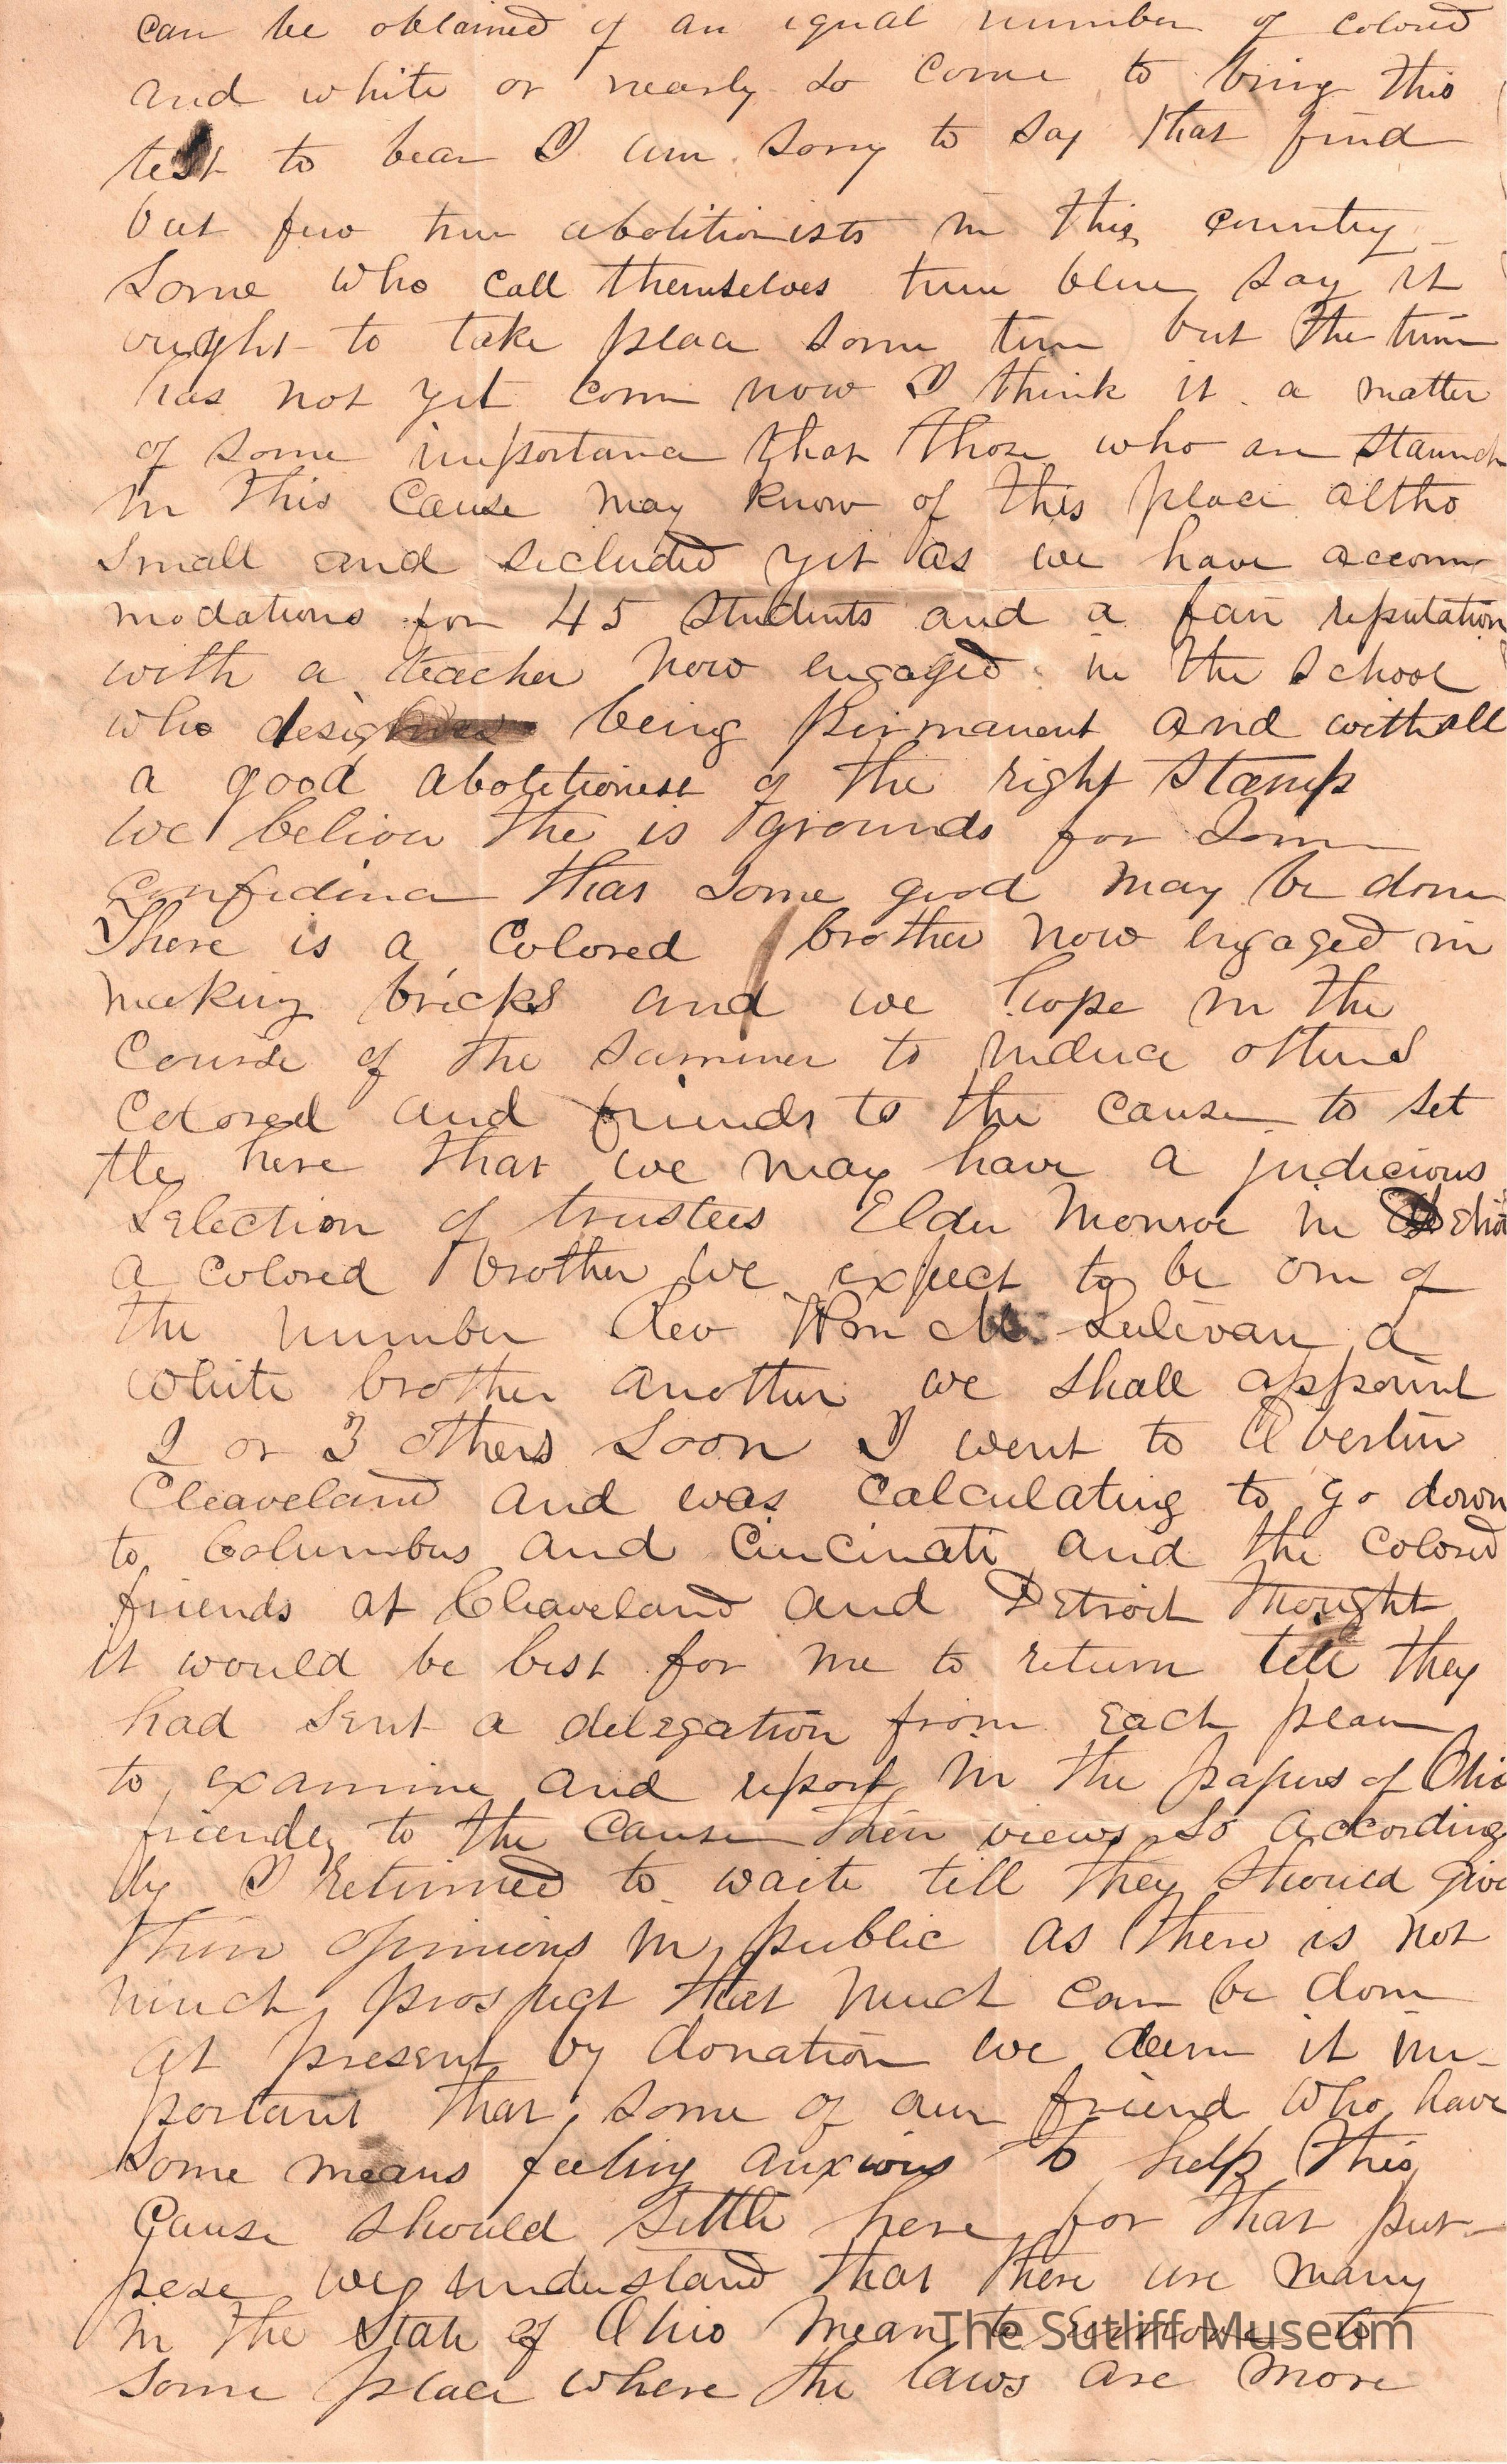 can be obtained of an equal number of colored
and white or nearly so come to bring this
test to bear I am sorry to say that find
but few true abolitionists in this country
Some who call themselves true blue say it
ought to take place some time but the time
has not yet come now I think it a matter
of some importance that those who are staunch
in this cause may know of this place altho
small and secluded yet as we have accom
modations for 45 students and a fair reputation
with a teacher now engaged in the school
who being permanent and withall
a good abolitionist of the right stamp
we believe the is grounds for some
confidence that some good may be done
There is a colored brother now engaged in
making bricks and we hope in the
course of the summer to induce others
colored and friends to the cause to set
tle here that we may have a judicious
selection of trustees Elder Monroe in
a colored brother we expect to be one of
the number Rev Wm M. Sulivan a
white brother another we shall appoint
2 or 3 others soon I went to Oberlin
Cleaveland and was calculating to go down
to Columbus and Cincinati and the colored
friends at Cleaveland and Detroit thought
it would be best for me to return till they
had sent a delegation from each place
to examine and report in the papers of Ohio
friendly to the cause their views so according
ly I returned to waite till they should give
their opinions in public as there is not
much prospect that much can be done
at present by donation we deem it im-
portant that some of our friend who have
some means feeling anxious to help this
cause should settle here for that pur-
pose we understand that there are many
in the State of Ohio mean to to
some place where the laws are more
The Sutliff Museum